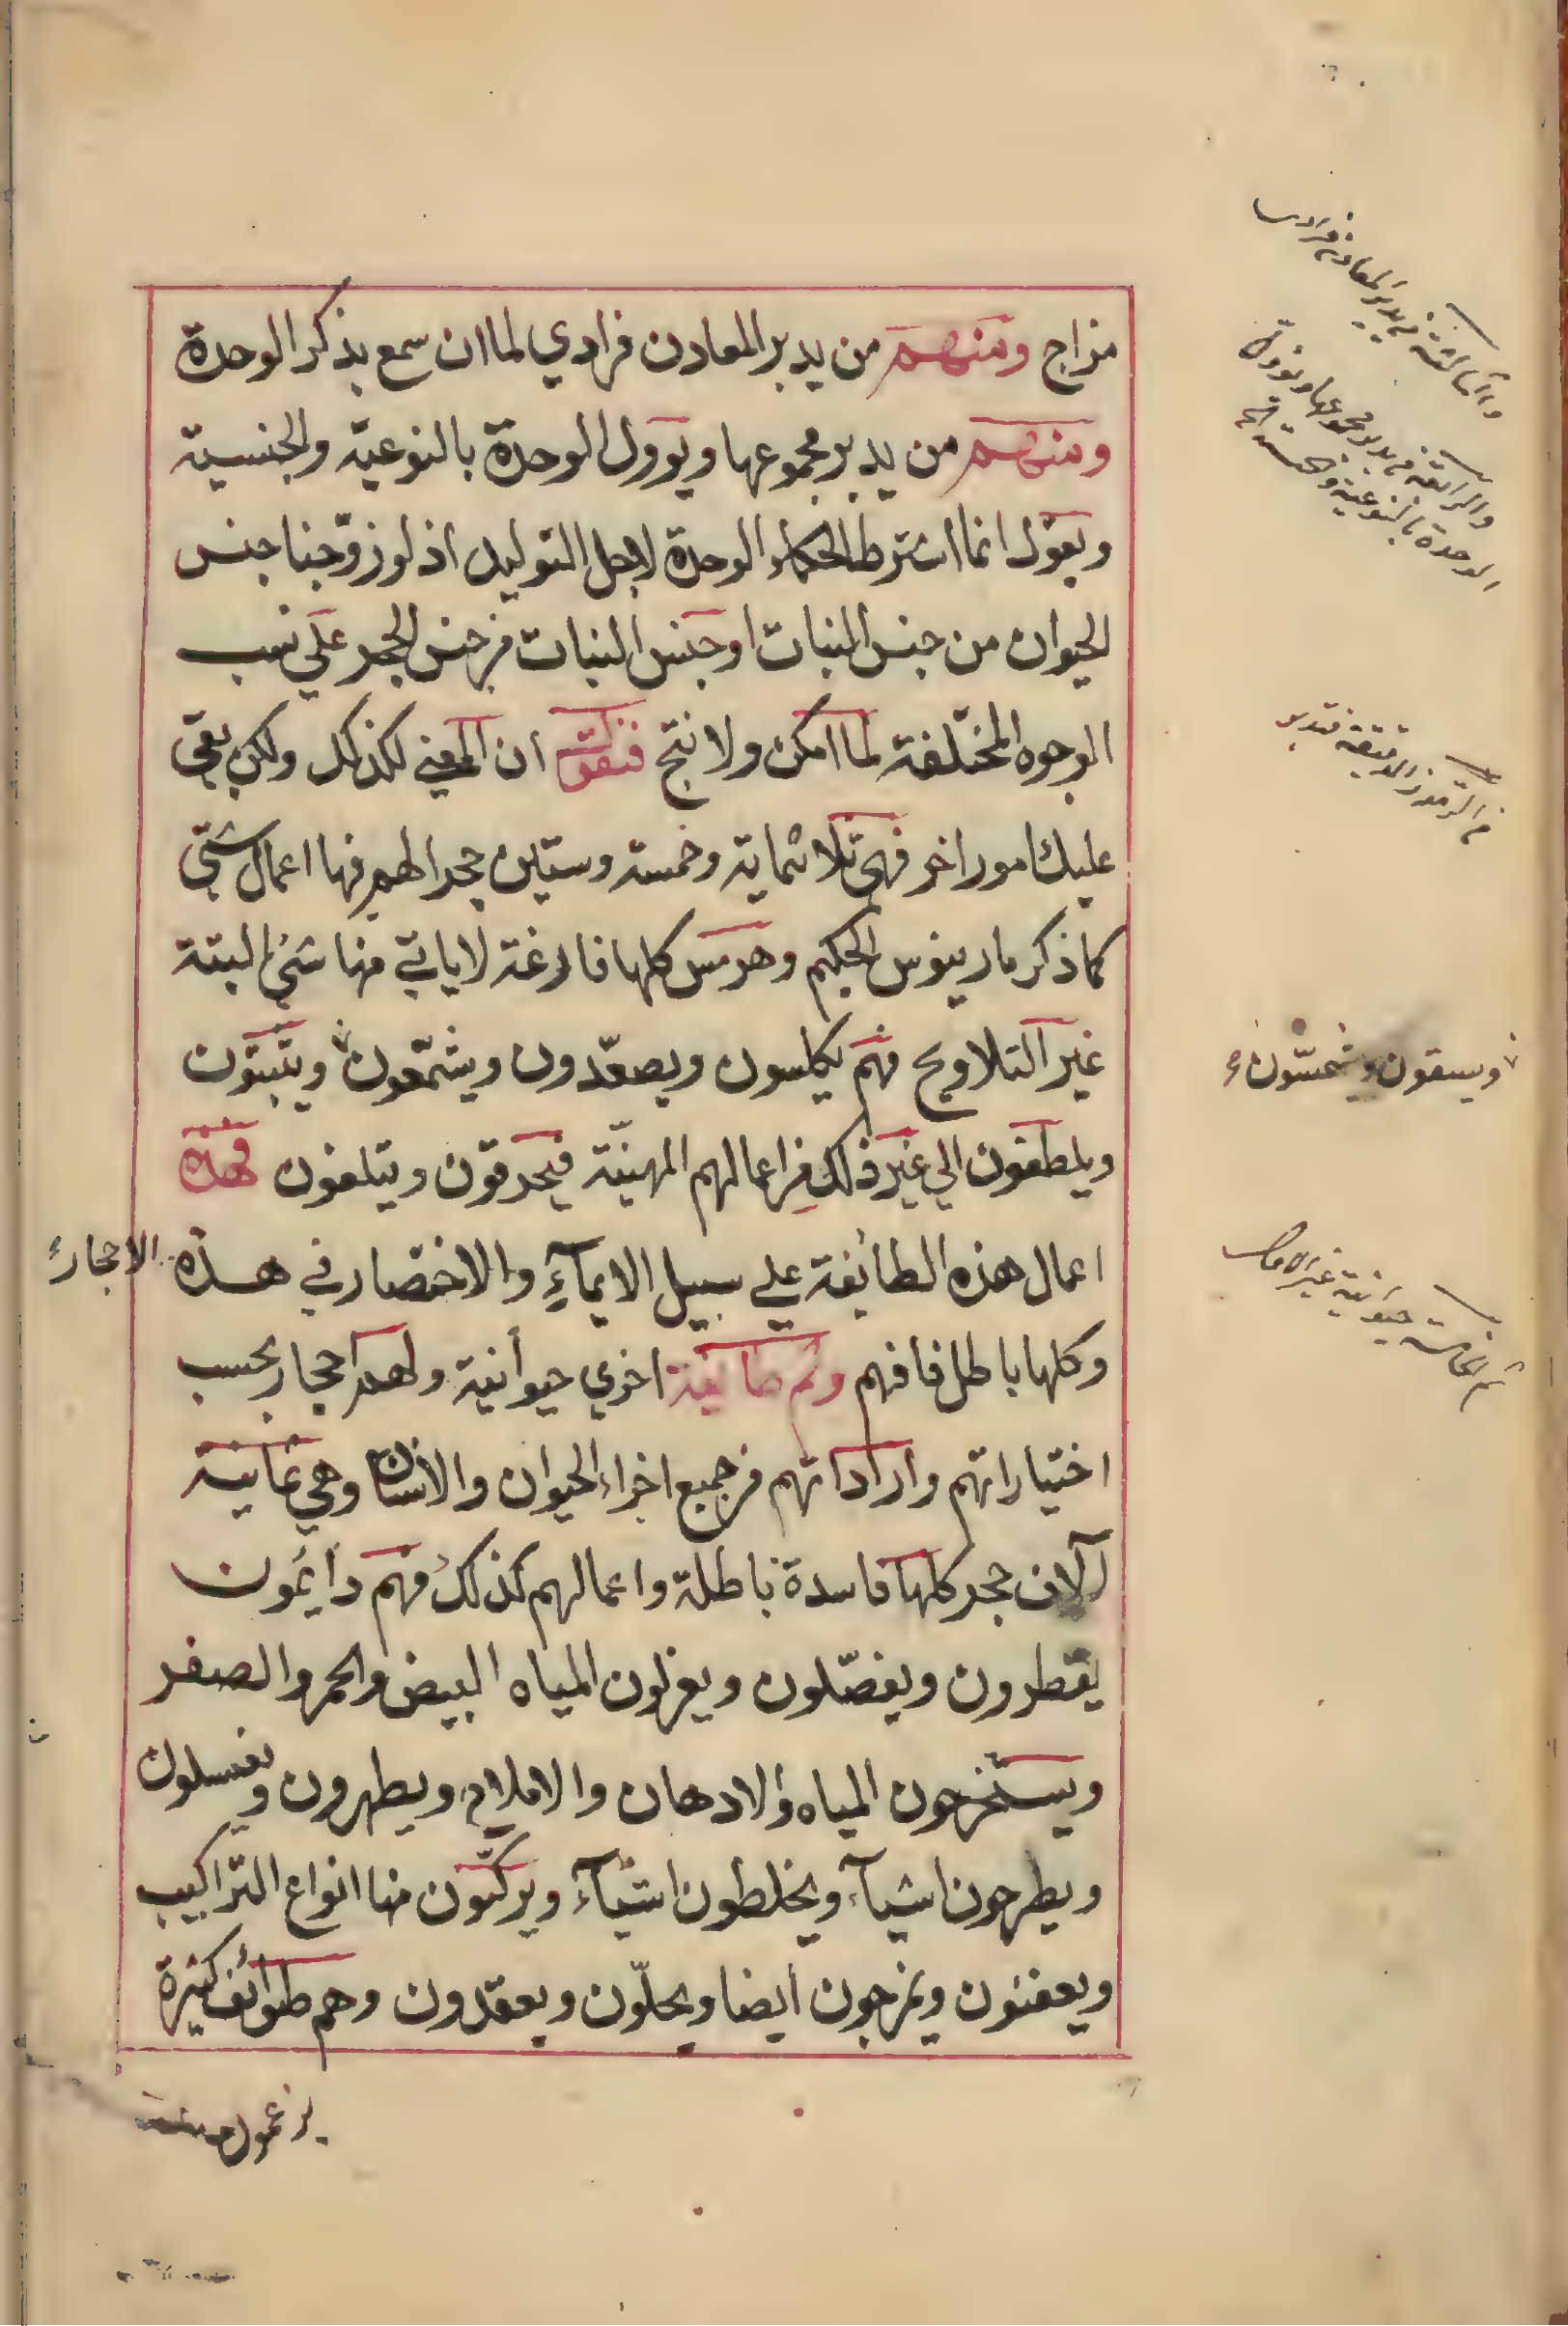 مزاج ومنهم من يدبر المعادن فرادي لما ان سمع بذكر الوحدة
ومنهم من يدبر مجموعها ويوول الوحدة بالنوعية والجنسية
ويقول انما اشترط الحكماء الوحدة لاجل التوليد اذ لو زوّجنا جنس
الحيوان من جنس النبات او جنس النبات من جنس الحجر علي نسب
الوجوه المختلفة لما امكن ولا نتج فنقول ان المعني لكذلك ولكن بقي
عليك امور اخر فهي ثلاثماية وخمسة وستين حجرا لهم فيها اعمال شتي
كما ذكر مارينوس الحكيم وهرمس كلها فارغة لا ياتي منها شئ البتة
غير التلاويح فهم يكلسون ويصعّدون ويشمّعون ويثبتون
ويلطفون الي غير ذلك من اعمالهم المهنيّة فيحرقون ويتلفون فهذه
اعمال هذه الطائفة علي سبيل الايمآء والاختصار في هذه الاحجار
وكلها باطل فافهم وثم طائفة اخري حيوانية ولهم احجار بحسب
اختياراتهم واراداتهم من جميع اجزاء الحيوان والانسان وهي ثمانية
آلاف حجر كلها فاسدة باطلة واعمالهم كذلك فهم دائمون
يقطرون ويفصّلون ويعزلون المياه البيض والحمر والصفر
ويستخرجون المياه والادهان والاملاح ويطهرون ويغسلون
ويطرحون اشيآء ويخلطون اشيآء ويركّبون منها انواع التراكيب
ويعفنون ويمزجون ايضا ويحلّون ويعقدون وهم طوائف كثيرة
يزعمون
والثالثة من يدبر المعادن فرادي
والرابعة من يدبر مجموعها ويوول
الوحدة بالنوعية والجنسية الخ
من الرموز الدقيقة فتدبر
ويسقون